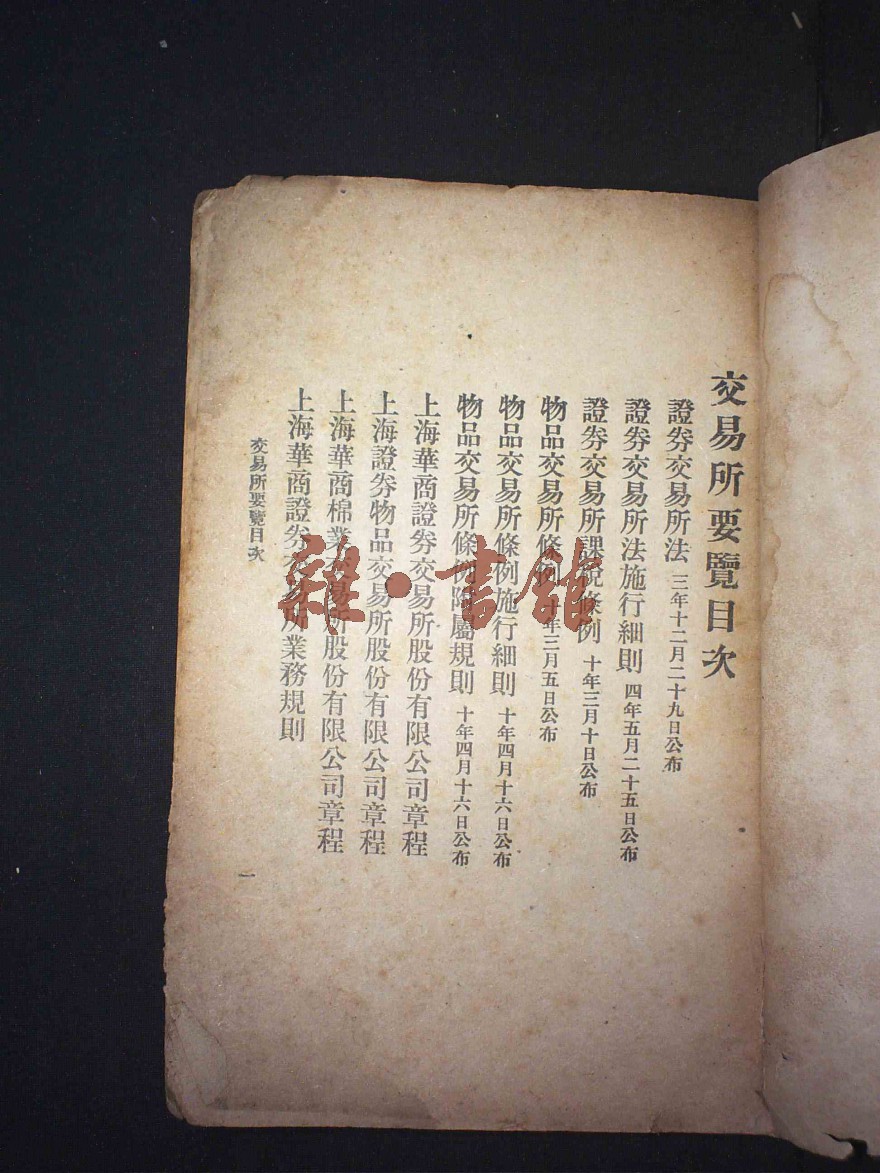 交易所要覽目次
證券交易所法 三年十二月二十九日公布
證券交易所法施行細則 四年五月二十五日公布
證券交易所課稅條例 十年三月十日公布
物品交易所條例 十年三月五日公布
物品交易所條例施行細則 十年四月十六日公布
物品交易所條例附屬規則 十年四月十六日公布
上海華商證券交易所股份有限公司章程
上海證券物品交易所股份有限公司章程
上海華商棉業交易所股份有限公司章程
上海華商證券交易所業務規則
交易所要覽目次
一
雜·書館